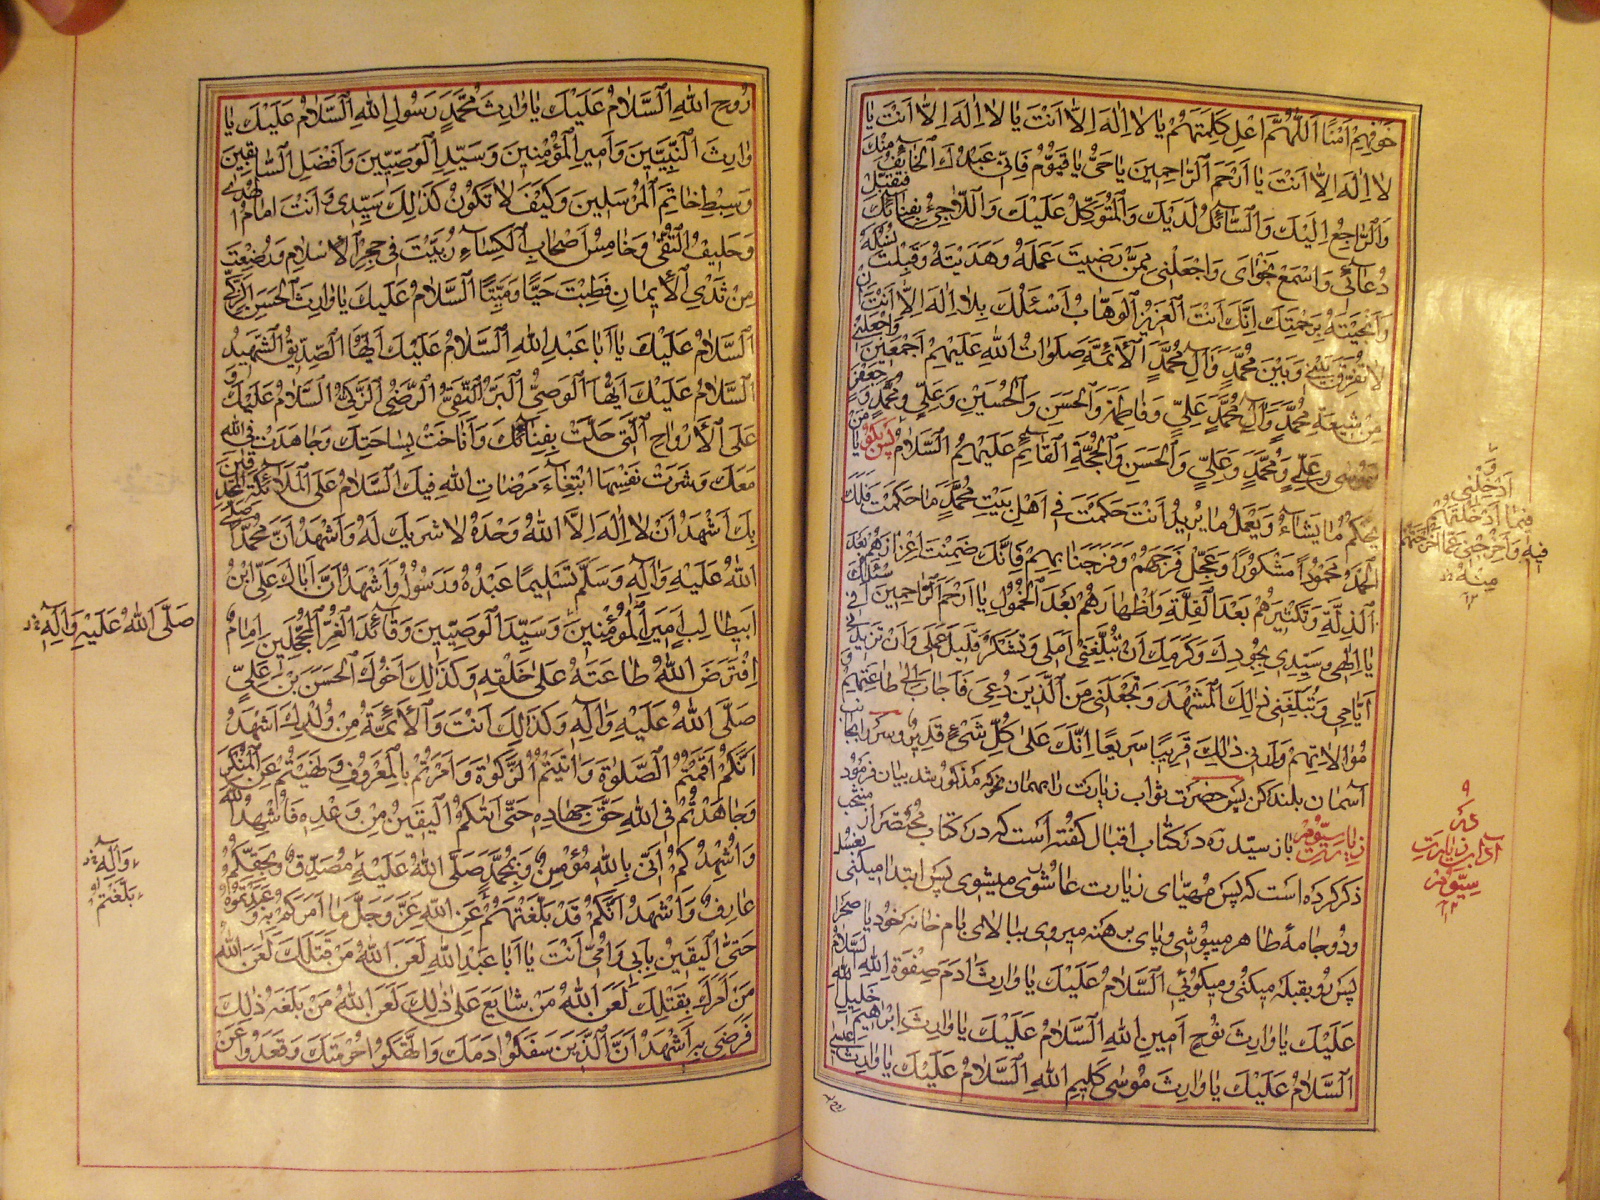 خَوْفِهِمْ اَمْنًا اَللّٰهُمَّ اَعْلِ كَلِمَتَهُمْ يا لا اِلٰهَ اِلَّا اَنْتَ يا لا اِلٰهَ اِلَّا اَنْتَ يا
لا اِلٰهَ اِلَّا اَنْتَ يا اَرْحَمَ الرّاحِمينَ يا حَىُّ يا قَيُّومُ فَاِنّى عَبْدُكَ الْخائِفُ مِنْكَ
وَالرّاجِعُ اِلَيْكَ وَالسّائِلُ لَدَيْكَ وَالْمُتَوَكِّلُ عَلَيْكَ وَاللّاجِئُ بِفِنائِكَ فَتَقَبَّلْ
دُعائى وَاسْمَعْ نَجْواىَ وَاجْعَلْنى مِمَّنْ رَضيتَ عَمَلَهُ وَهَدَيْتَهُ وَقَبِلْتَ نُسُكَهُ
وَانْتَجَيْتَهُ بِرَحْمَتِكَ اِنَّكَ اَنْتَ الْعَزيزُ الْوَهّابُ اَسْئَلُكَ بِلا اِلٰهَ اِلَّا اَنْتَ اَنْ
لا تُفَرِّقَ بَيْنى وَبَيْنَ مُحَمَّدٍ وَآلِ مُحَمَّدٍ الْاَئِمَّةِ صَلَواتُ اللهِ عَلَيْهِمْ اَجْمَعينَ وَاجْعَلْنى
مِنْ شيعَةِ مُحَمَّدٍ وَآلِ مُحَمَّدٍ عَلِىٍّ وَفاطِمَةَ وَالْحَسَنِ وَالْحُسَيْنِ وَعَلِىٍّ وَمُحَمَّدٍ وَجَعْفَرٍ
وَمُوسى وَعَلِىٍّ وَمُحَمَّدٍ وَعَلِىٍّ وَالْحَسَنِ وَالْحُجَّةِ الْقائِمِ عَلَيْهِمُ السَّلامُ پس بگو يا مَنْ
يَحْكُمُ ما يَشاءُ وَيَعْمَلُ ما يُريدُ اَنْتَ حَكَمْتَ فى اَهْلِ بَيْتِ مُحَمَّدٍ ما حَكَمْتَ فَلَكَ
الْحَمْدُ مَحْمُودًا مَشْكُورًا وَعَجِّلْ فَرَجَهُمْ وَفَرَجَنا بِهِمْ فَاِنَّكَ ضَمِنْتَ اِعْزازَهُمْ بَعْدَ
الذِّلَّةِ وَتَكْثيرَهُمْ بَعْدَ الْقِلَّةِ وَاِظْهارَهُمْ بَعْدَ الْخُمُولِ يا اَرْحَمَ الرّاحِمينَ اَسْئَلُكَ
يا اِلٰهى وَسَيِّدى بِجُودِكَ وَكَرَمِكَ اَنْ تُبَلِّغَنى اَمَلى وَتَشْكُرَ قَليلَ عَمَلى وَاَنْ تَزيدَ فى
اَيّامى وَتُبَلِّغَنى ذٰلِكَ الْمَشْهَدَ وَتَجْعَلَنى مِنَ الَّذينَ دُعِىَ فَاَجابَ اِلى طاعَتِهِمْ وَ
مُوالاتِهِمْ وَاَرِنى ذٰلِكَ قَريبًا سَريعًا اِنَّكَ عَلى كُلِّ شَىْءٍ قَديرٌ و سر را بجانب
آسمان بلند كن پس حضرت ثواب زيارت را بهمان نحو كه مذكور شد بيان فرمود
زيارت سيّوم باز سيد ره در كتاب اقبال كفته است كه در كتاب مختصر از منتخب
ذكر كرده است كه پس مهيّاى زيارت عاشورا ميشوى پس ابتدا ميكنى بغسل
و دو جامهٔ طاهر ميپوشى و پاى برهنه ميروى ببالاى بام خانه خود يا صحرا
پس رو بقبله ميكنى و ميكوئى اَلسَّلامُ عَلَيْكَ يا وارِثَ ادَمَ صِفْوَةِ اللهِ السَّلامُ
عَلَيْكَ يا وارِثَ نُوحٍ اَمينِ اللهِ اَلسَّلامُ عَلَيْكَ يا وارِثَ اِبْراهيمَ خَليلِ اللهِ
اَلسَّلامُ عَلَيْكَ يا وارِثَ مُوسى كَليمِ اللهِ اَلسَّلامُ عَلَيْكَ يا وارِثَ عيسى
روح
وَاَدْخِلْنى
فيما اَدْخَلْتَهُمْ
فيهِ وَاَخْرِجْنى مِمّا اَخْرَجْتَهُمْ
مِنْهُ
٩
سيّوم
رُوحِ اللهِ اَلسَّلامُ عَلَيْكَ يا وارِثَ مُحَمَّدٍ رَسُولِ اللهِ اَلسَّلامُ عَلَيْكَ يا
وارِثَ النَّبِيّينَ وَاَميرِ الْمُؤْمِنينَ وَسَيِّدِ الْوَصِيّينَ وَاَفْضَلِ السّابِقينَ
وَسِبْطِ خاتِمِ الْمُرْسَلينَ وَكَيْفَ لا تَكُونُ كَذٰلِكَ سَيِّدى وَاَنْتَ اِمامُ الْهُدى
وَحَليفُ التُّقى وَخامِسُ اَصْحابِ الْكِساءِ رُبّيتَ فى حِجْرِ الْاِسْلامِ وَرُضِعْتَ
مِنْ ثَدْىِ الْايمانِ فَطِبْتَ حَيًّا وَمَيِّتًا اَلسَّلامُ عَلَيْكَ يا وارِثَ الْحَسَنِ الزَّكِىِّ
اَلسَّلامُ عَلَيْكَ يا اَبا عَبْدِ اللهِ اَلسَّلامُ عَلَيْكَ اَيُّهَا الصِّدّيقُ الشَّهيدُ
اَلسَّلامُ عَلَيْكَ اَيُّهَا الْوَصِىُّ الْبَرُّ التَّقِىُّ الرَّضِىُّ الزَّكِىُّ اَلسَّلامُ عَلَيْكَ وَ
عَلَى الْاَرْواحِ الَّتى حَلَّتْ بِفِنائِكَ وَاَناخَتْ بِساحَتِكَ وَجاهَدَتْ فِى اللهِ
مَعَكَ وَشَرَتْ نَفْسَهَا ابْتِغاءَ مَرْضاتِ اللهِ فيكَ السَّلامُ عَلَى الْمَلائِكَةِ الْمُحْدِقينَ
بِكَ اَشْهَدُ اَنْ لا اِلٰهَ اِلَّا اللهُ وَحْدَهُ لا شَريكَ لَهُ وَاَشْهَدُ اَنَّ مُحَمَّدًا صَلَّى
اللهُ عَلَيْهِ وَآلِهِ وَسَلَّمَ تَسْليمًا عَبْدُهُ وَرَسُولُهُ وَاَشْهَدُ اَنَّ اَباكَ عَلِىَّ ابْنَ
اَبيطالِبٍ اَميرُ الْمُؤْمِنينَ وَسَيِّدُ الْوَصِيّينَ وَقائِدُ الْغُرِّ الْمُحَجَّلينَ اِمامٌ
اِفْتَرَضَ اللهُ طاعَتَهُ عَلى خَلْقِهِ وَكَذٰلِكَ اَخُوكَ الْحَسَنُ بْنُ عَلِىٍّ
صَلَّى اللهُ عَلَيْهِ وَآلِهِ وَكَذٰلِكَ اَنْتَ وَالْاَئِمَّةُ مِنْ وُلْدِكَ اَشْهَدُ
اَنَّكُمْ اَقَمْتُمُ الصَّلٰوةَ وَاٰتَيْتُمُ الزَّكٰوةَ وَاَمَرْتُمْ بِالْمَعْرُوفِ وَنَهَيْتُمْ عَنِ الْمُنْكَرِ
وَجاهَدْتُمْ فِى اللهِ حَقَّ جِهادِهِ حَتّى اَتيكُمُ الْيَقينُ مِنْ وَعْدِهِ فَاُشْهِدُ اللهَ
وَاُشْهِدُكُمْ اَنّى بِاللهِ مُؤْمِنٌ وَبِمُحَمَّدٍ صَلَّى اللهُ عَلَيْهِ مُصَدِّقٌ وَبِحَقِّكُمْ
عارِفٌ وَاَشْهَدُ اَنَّكُمْ قَدْ بَلَّغْتُمْ عَنِ اللهِ عَزَّ وَجَلَّ ما اَمَرَكُمْ بِهِ وَعَبَدْتُمُوهُ
حَتّى الْيَقينِ بِاَبى وَاُمّى اَنْتَ يا اَبا عَبْدِ اللهِ لَعَنَ اللهُ مَنْ قَتَلَكَ لَعَنَ اللهُ
مَنْ اَمَرَ بِقَتْلِكَ لَعَنَ اللهُ مَنْ شايَعَ عَلى ذٰلِكَ لَعَنَ اللهُ مَنْ بَلَغَهُ ذٰلِكَ
فَرَضِىَ بِهِ اَشْهَدُ اَنَّ الَّذينَ سَفَكُوا دَمَكَ وَانْتَهَكُوا حُرْمَتَكَ وَقَعَدُوا عَنْ
صَلَّى اللهُ عَلَيْهِ وَآلِهِ
وَآلِهِ
بَلَّغْتُمْ